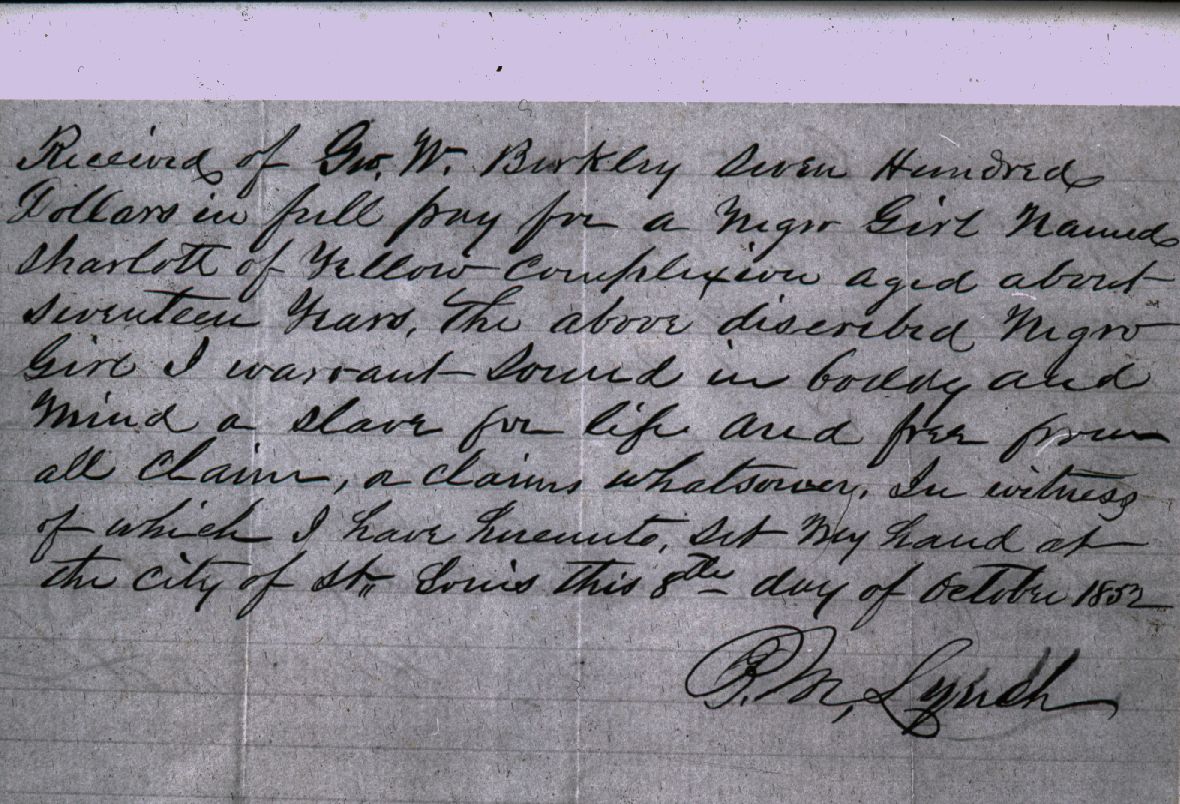 Received of Geo. W. Berkley Seven Hundred
Dollars in full pay for a Negro Girl Named
Sharlott of Yellow Complexion aged about
Seventeen Years, The above discribed Negro
Girl I warrant Sound in boddy and
Mind a slave for life and free from
all claim, or claims whatsoever, In witness
of which I have hereunto, set My hand at
the city of St. Louis this 8th day of October 1852
B. M. Lynch